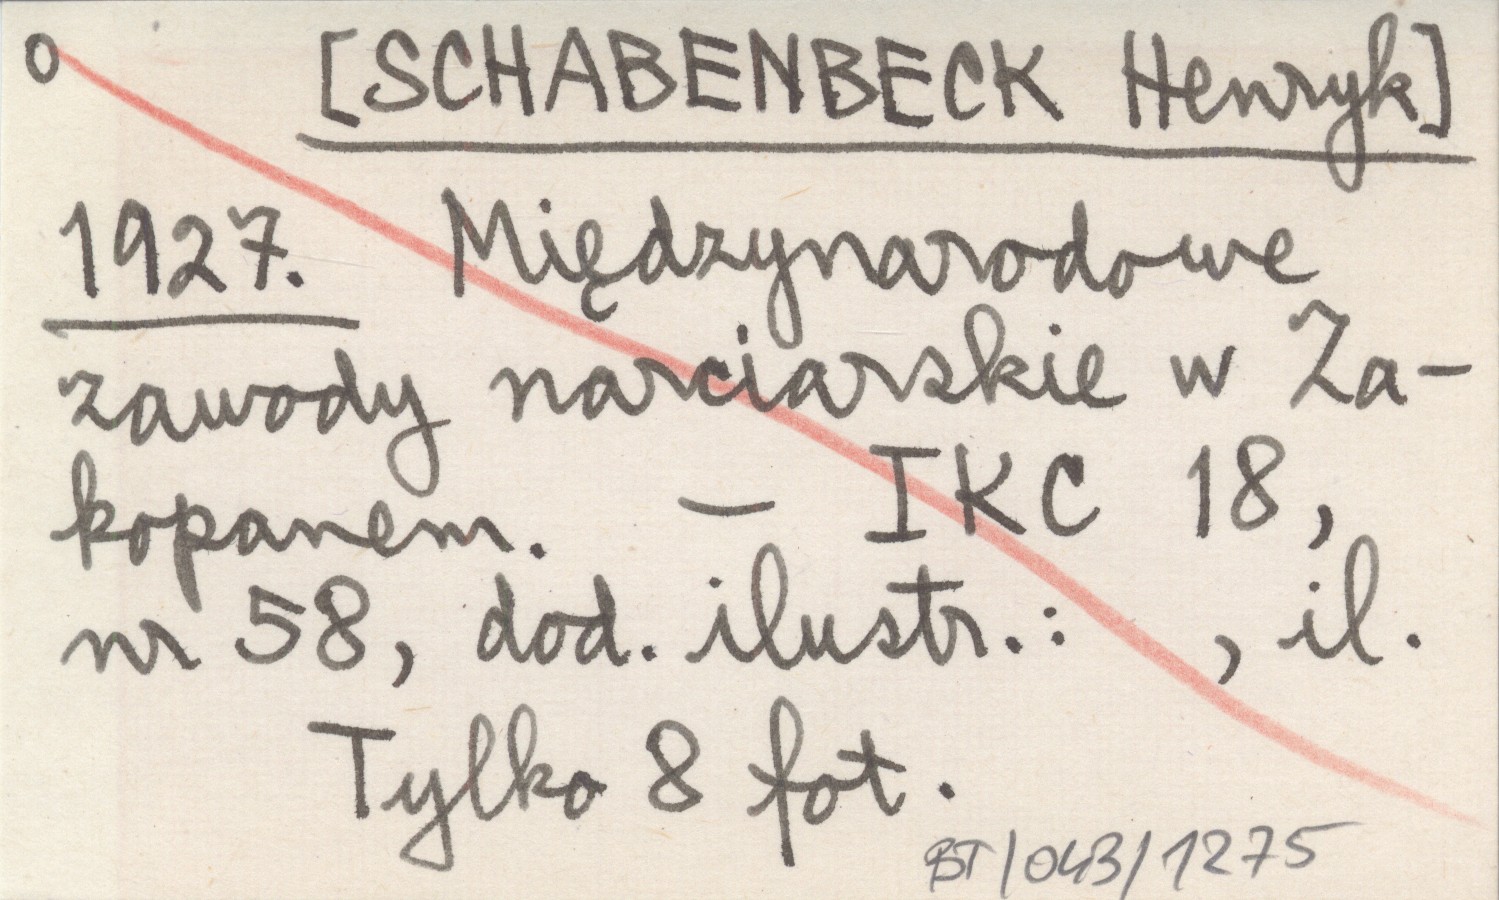 o [SCHABENBECK Henryk]
1927. Międzynarodowe
zawody narciarskie w Za-
kopanem. — IKC 18,
nr 58, dod. ilustr.: , il.
Tylko 8 fot.
BT/043/1275